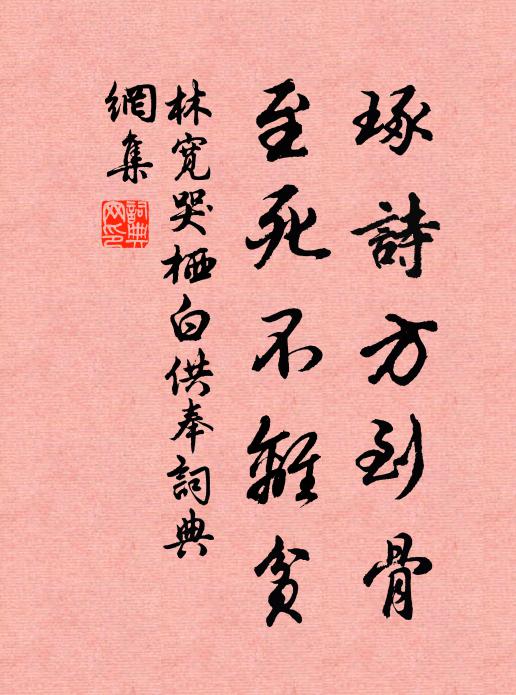 琢詩方到骨
至死不離貧
林寬哭栖白供奉詞典
網集
詞典網印